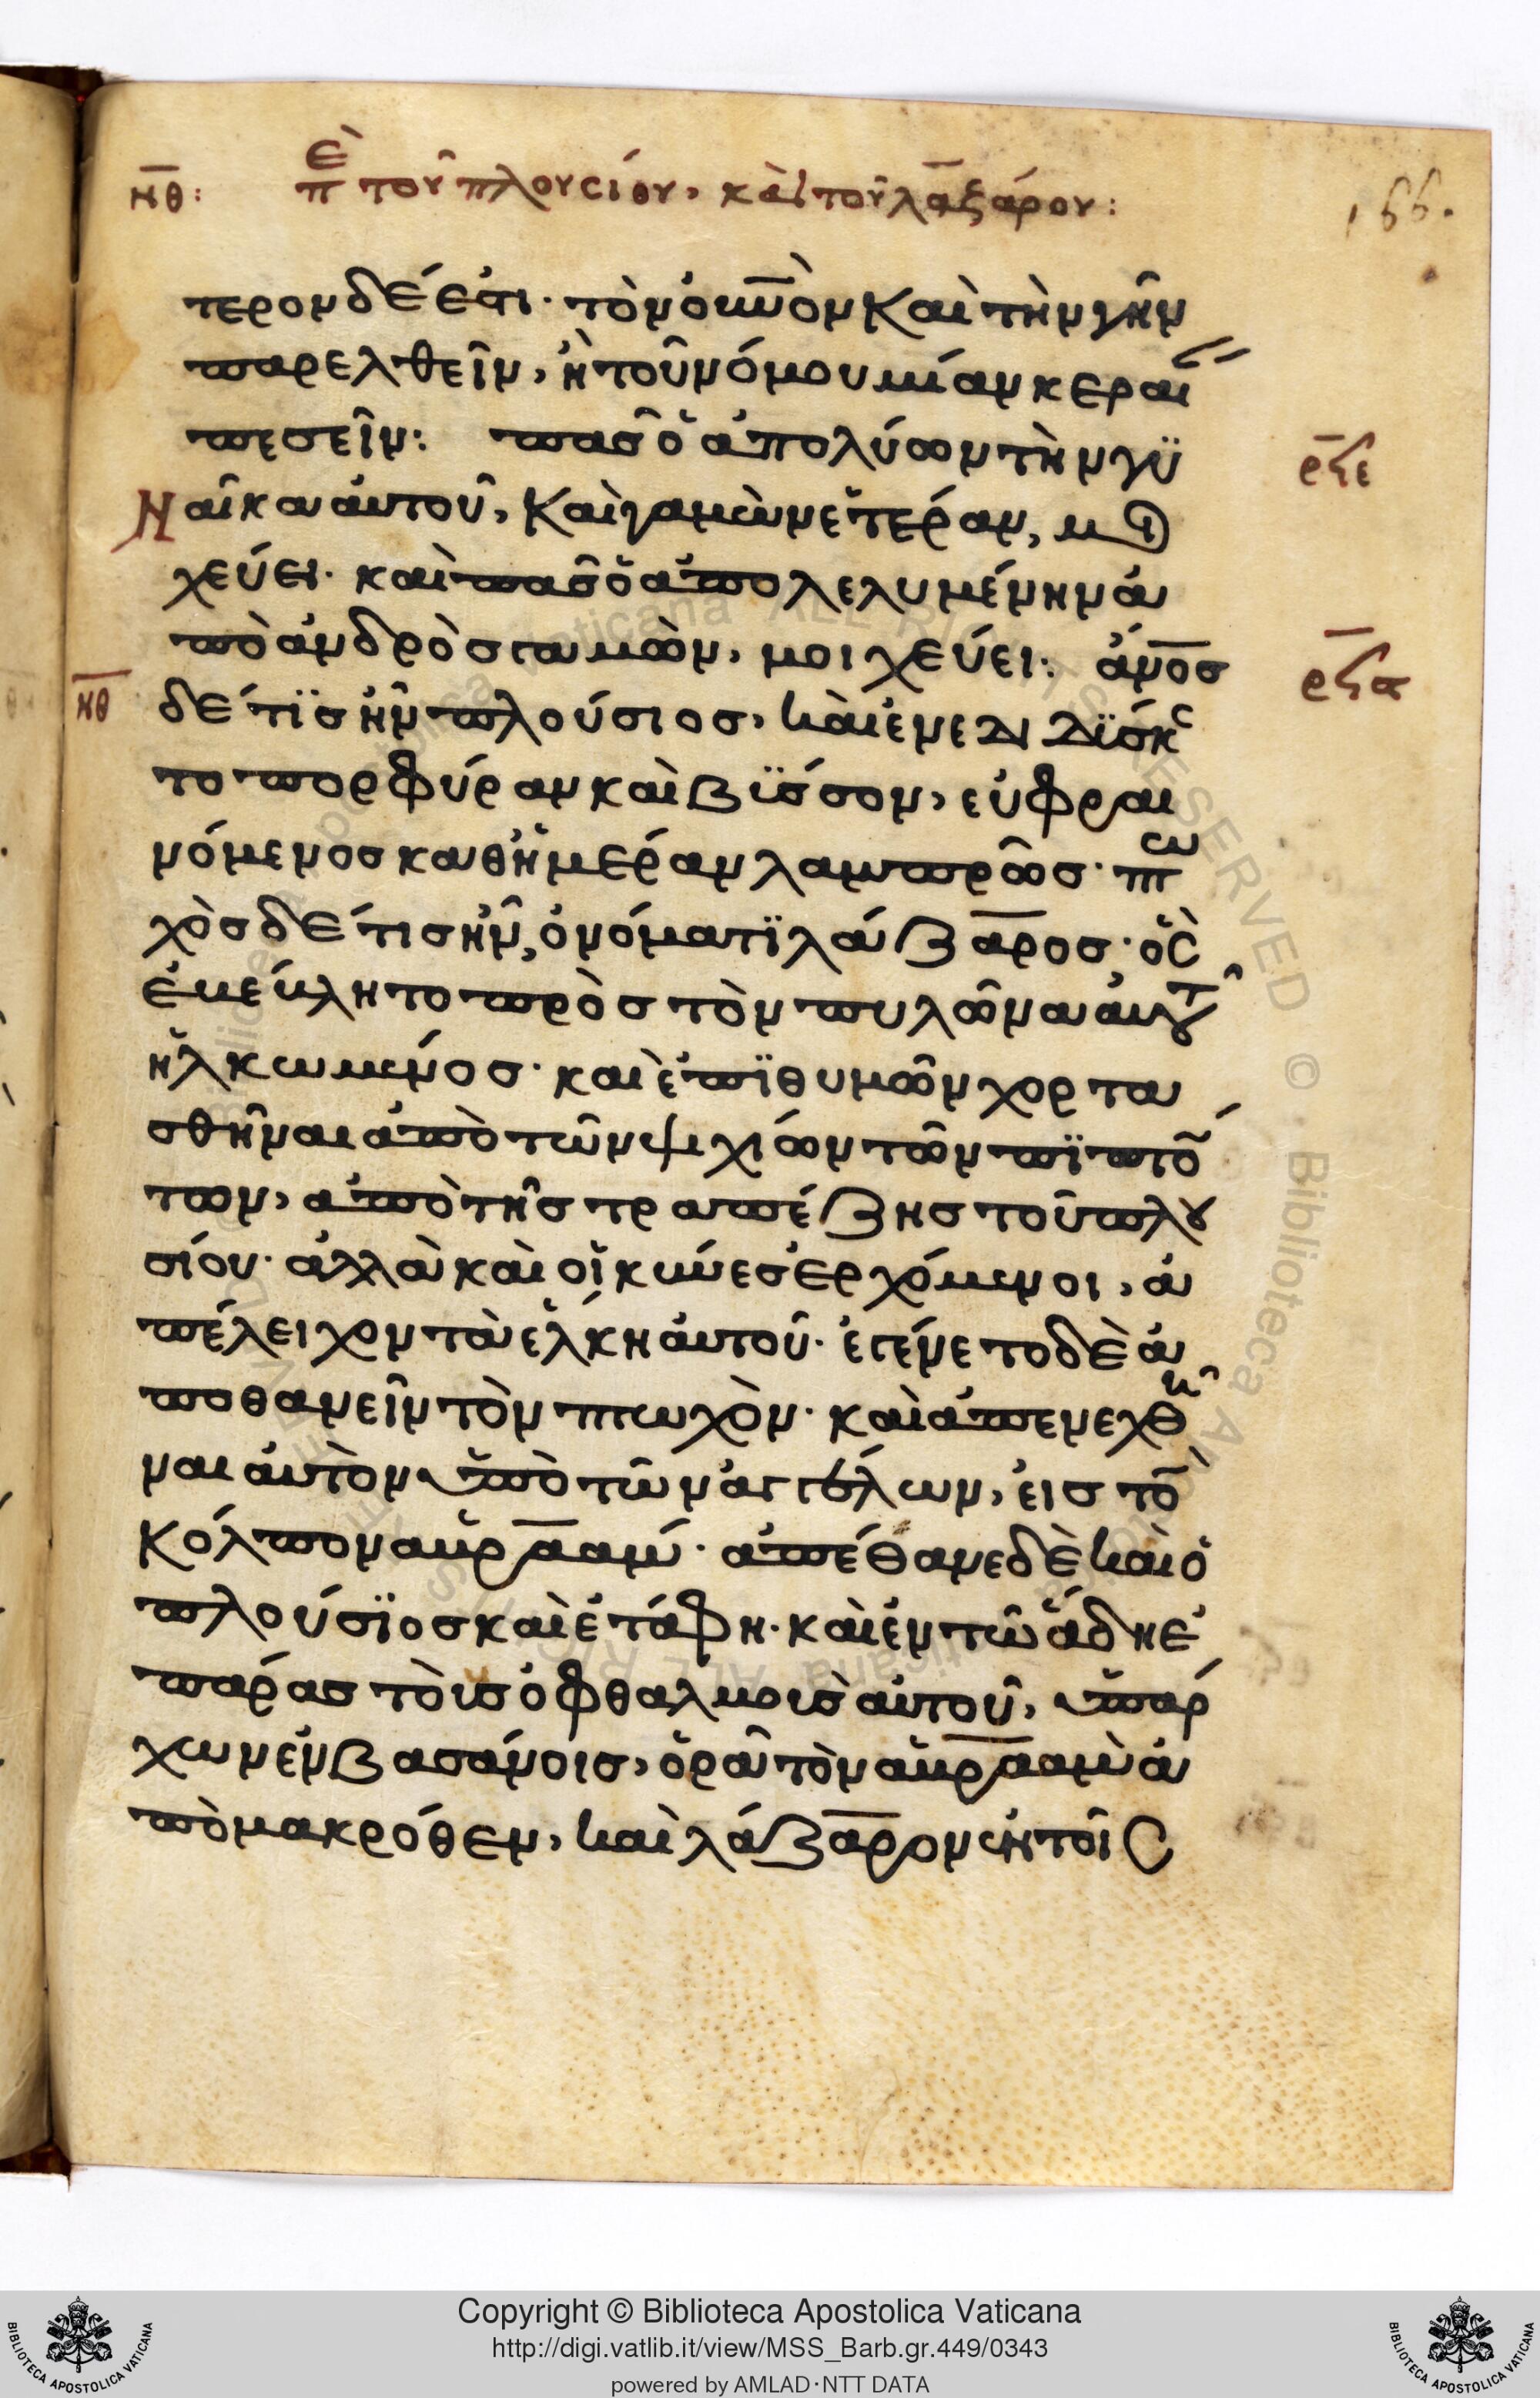 νθ: πε τοῦ πλουσίου, καὶ τοῦ λαζάρου: 166.
τερον δέ ἐστι· τὸν ο̅υ̅ν̅ὸν καὶ τὴν γῆν
παρελθεῖν, ἢ τοῦ νόμου μίαν κεραί
πεσεῖν: πᾶσ ὁ ἀπολύων τὴν γϋ ρϟε
Ναῖκα αὐτοῦ, καὶ γαμῶν ἑτέραν, μοι
χεύει· καὶ πᾶσ ὁ ἀπολελυμένην ἀ
πὸ ἀνδρὸσ γαμῶν, μοιχεύει: ἄν̅ο̅σ ρϟα
νθ δέ τϊσ ἦν πλούσιοσ, καὶ ἐνεδιδϊσκε
το πορφύραν καὶ βϊσσον, εὐφραι
νόμενοσ καθἡμέραν λαμπρῶσ· πτω
χὸσ δέ τισ ἦν, ὀνόματϊ λάζαροσ· ὃσ
ἐβέβλητο πρὸσ τὸν πυλῶνα αὐτοῦ
ἡλκωμένοσ· καὶ ἐπϊθυμῶν χορτα
σθῆναι ἀπὸ τῶν ψιχίων τῶν πϊπτό
των, ἀπὸ τῆσ τραπέζησ τοῦ πλου
σίου· ἀλλὰ καὶ οἱ κύνεσ ἐρχόμενοι, ἀ
πέλειχον τὰ ἕλκη αὐτοῦ· ἐγένετο δὲ ἀ
ποθανεῖν τὸν πτωχὸν· καὶ ἀπενεχθῆ
ναι αὐτὸν ὑπὸ τῶν ἀγγέλων, εἰσ τὸ
κόλπον ἀβραάμ· ἀπέθανε δὲ καὶ ὁ
πλούσϊοσ καὶ ἐτάφη· καὶ ἐν τῶ ἅδη ἐ
πάρασ τοὺσ ὀφθαλμοὺσ αὐτοῦ, ὑπάρ
χων ἐν βασάνοισ, ὁρᾶ τὸν ἀβραὰμ ἀ
πὸ μακρόθεν, καὶ λάζαρον ἐν τοῖσ
Copyright © Biblioteca Apostolica Vaticana
http://digi.vatlib.it/view/MSS_Barb.gr.449/0343
powered by AMLAD·NTT DATA